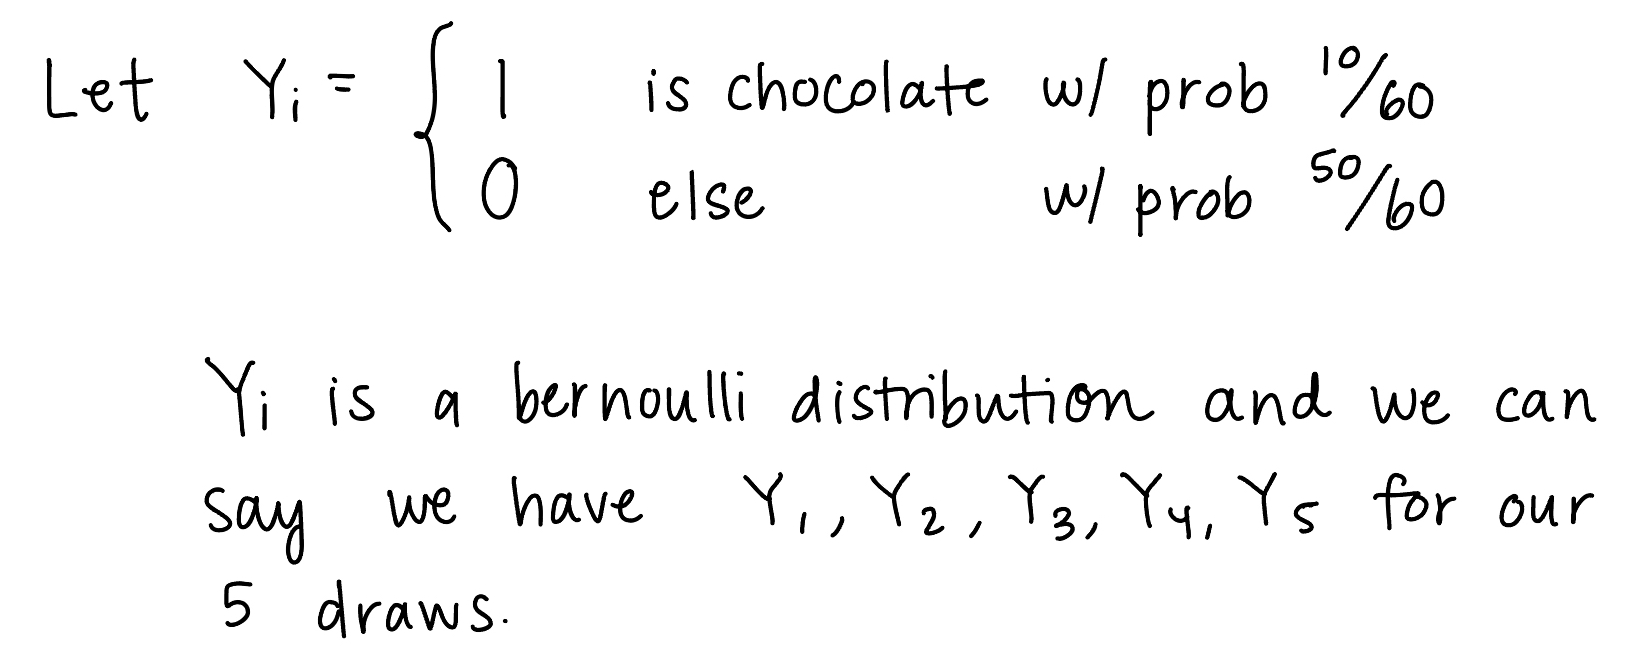 Let Yi = { 1 is chocolate w/ prob 10/60
0 else w/ prob 50/60
Yi is a bernoulli distribution and we can
say we have Y1, Y2, Y3, Y4, Y5 for our
5 draws.